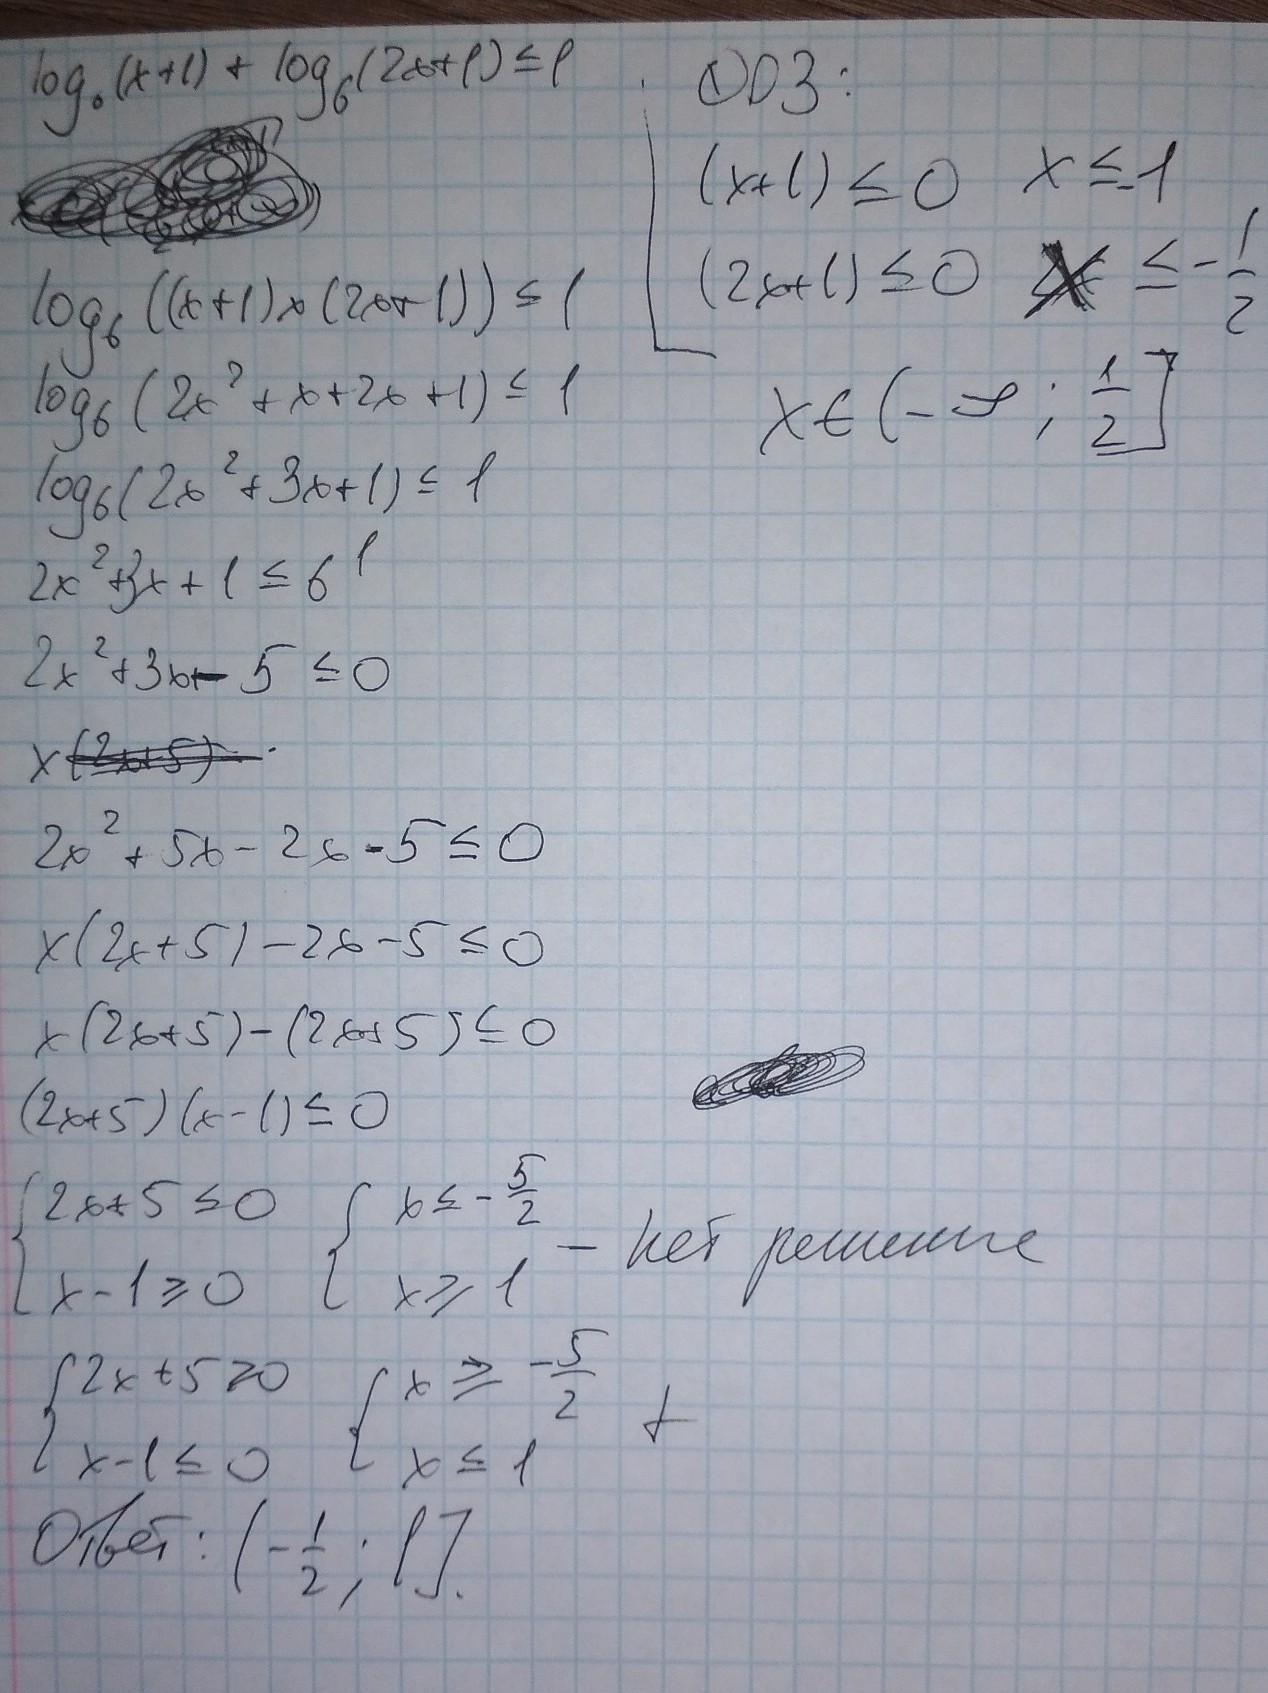 log₆(x+1) + log₆(2x+1) ≤ 1
log₆((x+1)×(2x+1)) ≤ 1
log₆(2x²+x+2x+1) ≤ 1
log₆(2x²+3x+1) ≤ 1
2x²+3x+1 ≤ 6¹
2x²+3x-5 ≤ 0
x(2x+5)
2x²+5x-2x-5 ≤ 0
x(2x+5)-2x-5 ≤ 0
x(2x+5)-(2x+5) ≤ 0
(2x+5)(x-1) ≤ 0
{2x+5 ≤ 0 {x ≤ -5/2
x-1 ≥ 0 x ≥ 1 - нет решение
{2x+5 ≥ 0 {x ≥ -5/2
x-1 ≤ 0 x ≤ 1 +
Ответ: (-1/2; 1].
ОДЗ:
(x+1) ≤ 0 x ≤ -1
(2x+1) ≤ 0 x ≤ -1/2
x∈(-∞; 1/2]